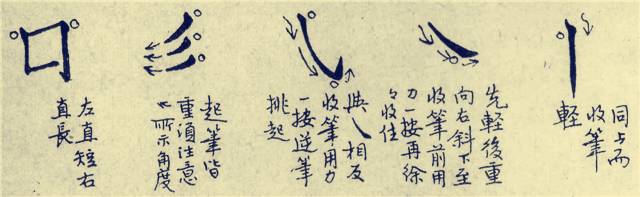 同上而
收筆
輕
先輕後重
向右斜下至
收筆前用
力一按再徐
々收住
與乀相反
收筆用力
一按逆筆
挑起
起筆皆
重須注意
所示角度
左直短右
直長